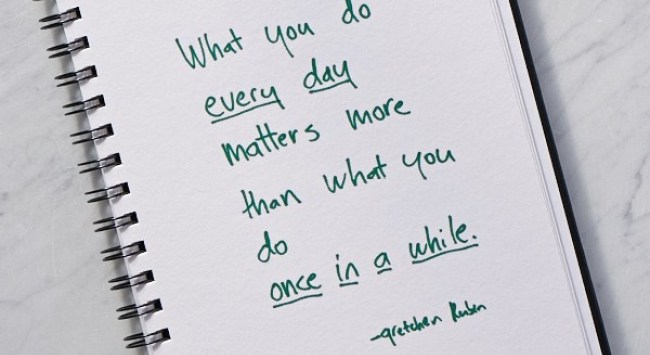 What you do
every day
matters more
than what you
do
once in a while.
-gretchen Rubin